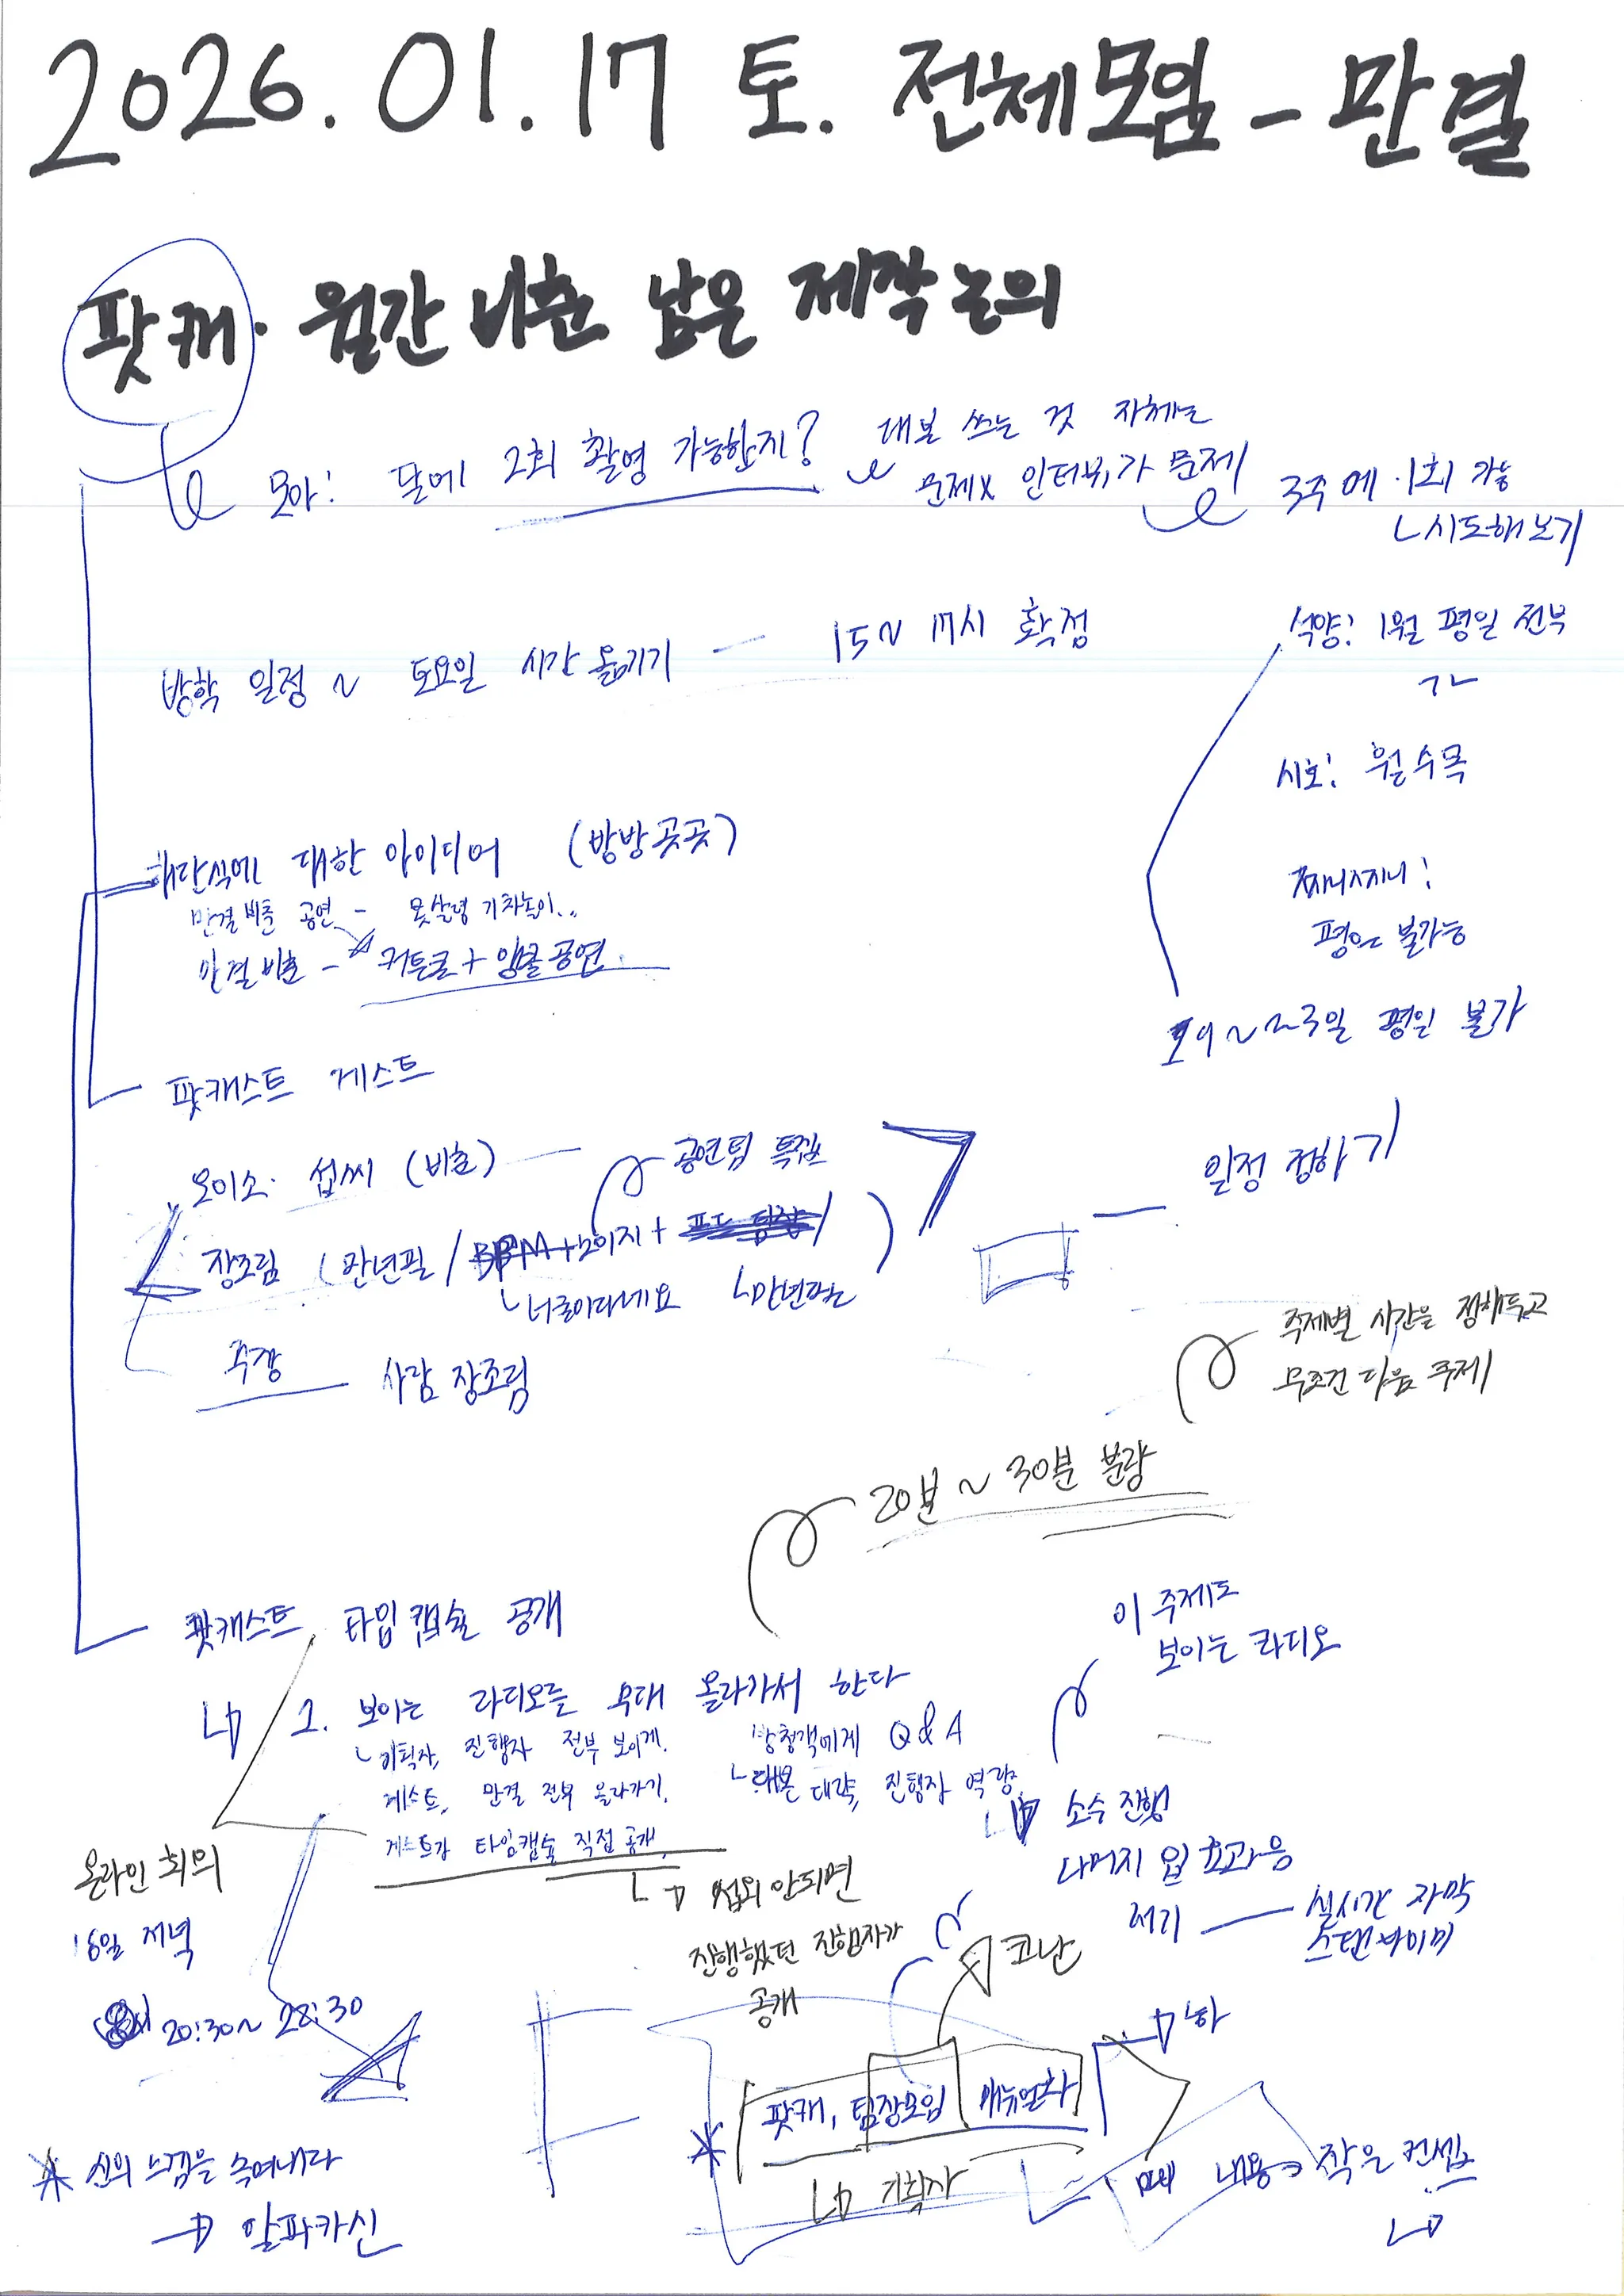 2026. 01. 17 토. 전체모임 - 만결
팟캐. 월간 비춘 남은 제작 논의
모아: 달에 2회 촬영 가능한지?
대본 쓰는 것 자체는
문제x 인터뷰가 문제
3주에 1회 가능
시도해보기
방학 일정 ~ 토요일 시간 옮기기 - 15~17시 확정
석양: 1월 평일 전부
ㄱㄴ
시호: 월수목
찌니찌니:
평일 불가능
~23일 평일 불가
해단식에 대한 아이디어 (방방곡곡)
만결 비춘 공연 -
만결 비춘 - 커튼콜 + 앵콜 공연.
팟캐스트 게스트
오이소. 섭씨 (비춘)
공연팀 특집
일정 정하기
장조림 (만년필 / BPM + 이지 +
너굴이다네요
만년필
주장
사람 장조림
주제별 시간을 정해두고
무조건 다음 주제
20분 ~ 30분 분량
팟캐스트 타임캡슐 공개
이 주제도
보이는 라디오
1. 보이는 라디오를 무대 올라가서 한다
기획자, 진행자 전부 보이게.
방청객에게 Q&A
게스트, 만결 전부 올라가기.
대본 대략, 진행자 역량.
게스트가 타임캡슐 직접 공개.
소수 진행
나머지 입 효과음
저기 - 실시간 자막
스탠바이미
섭외 안되면
진행했던 진행자가
공개
온라인 회의
16일 저녁
20:30~22:30
코난
팟캐, 팀장모임 매뉴얼화
기획자
내용 작은 컨셉
신의 느낌을 속여내라
알파카신